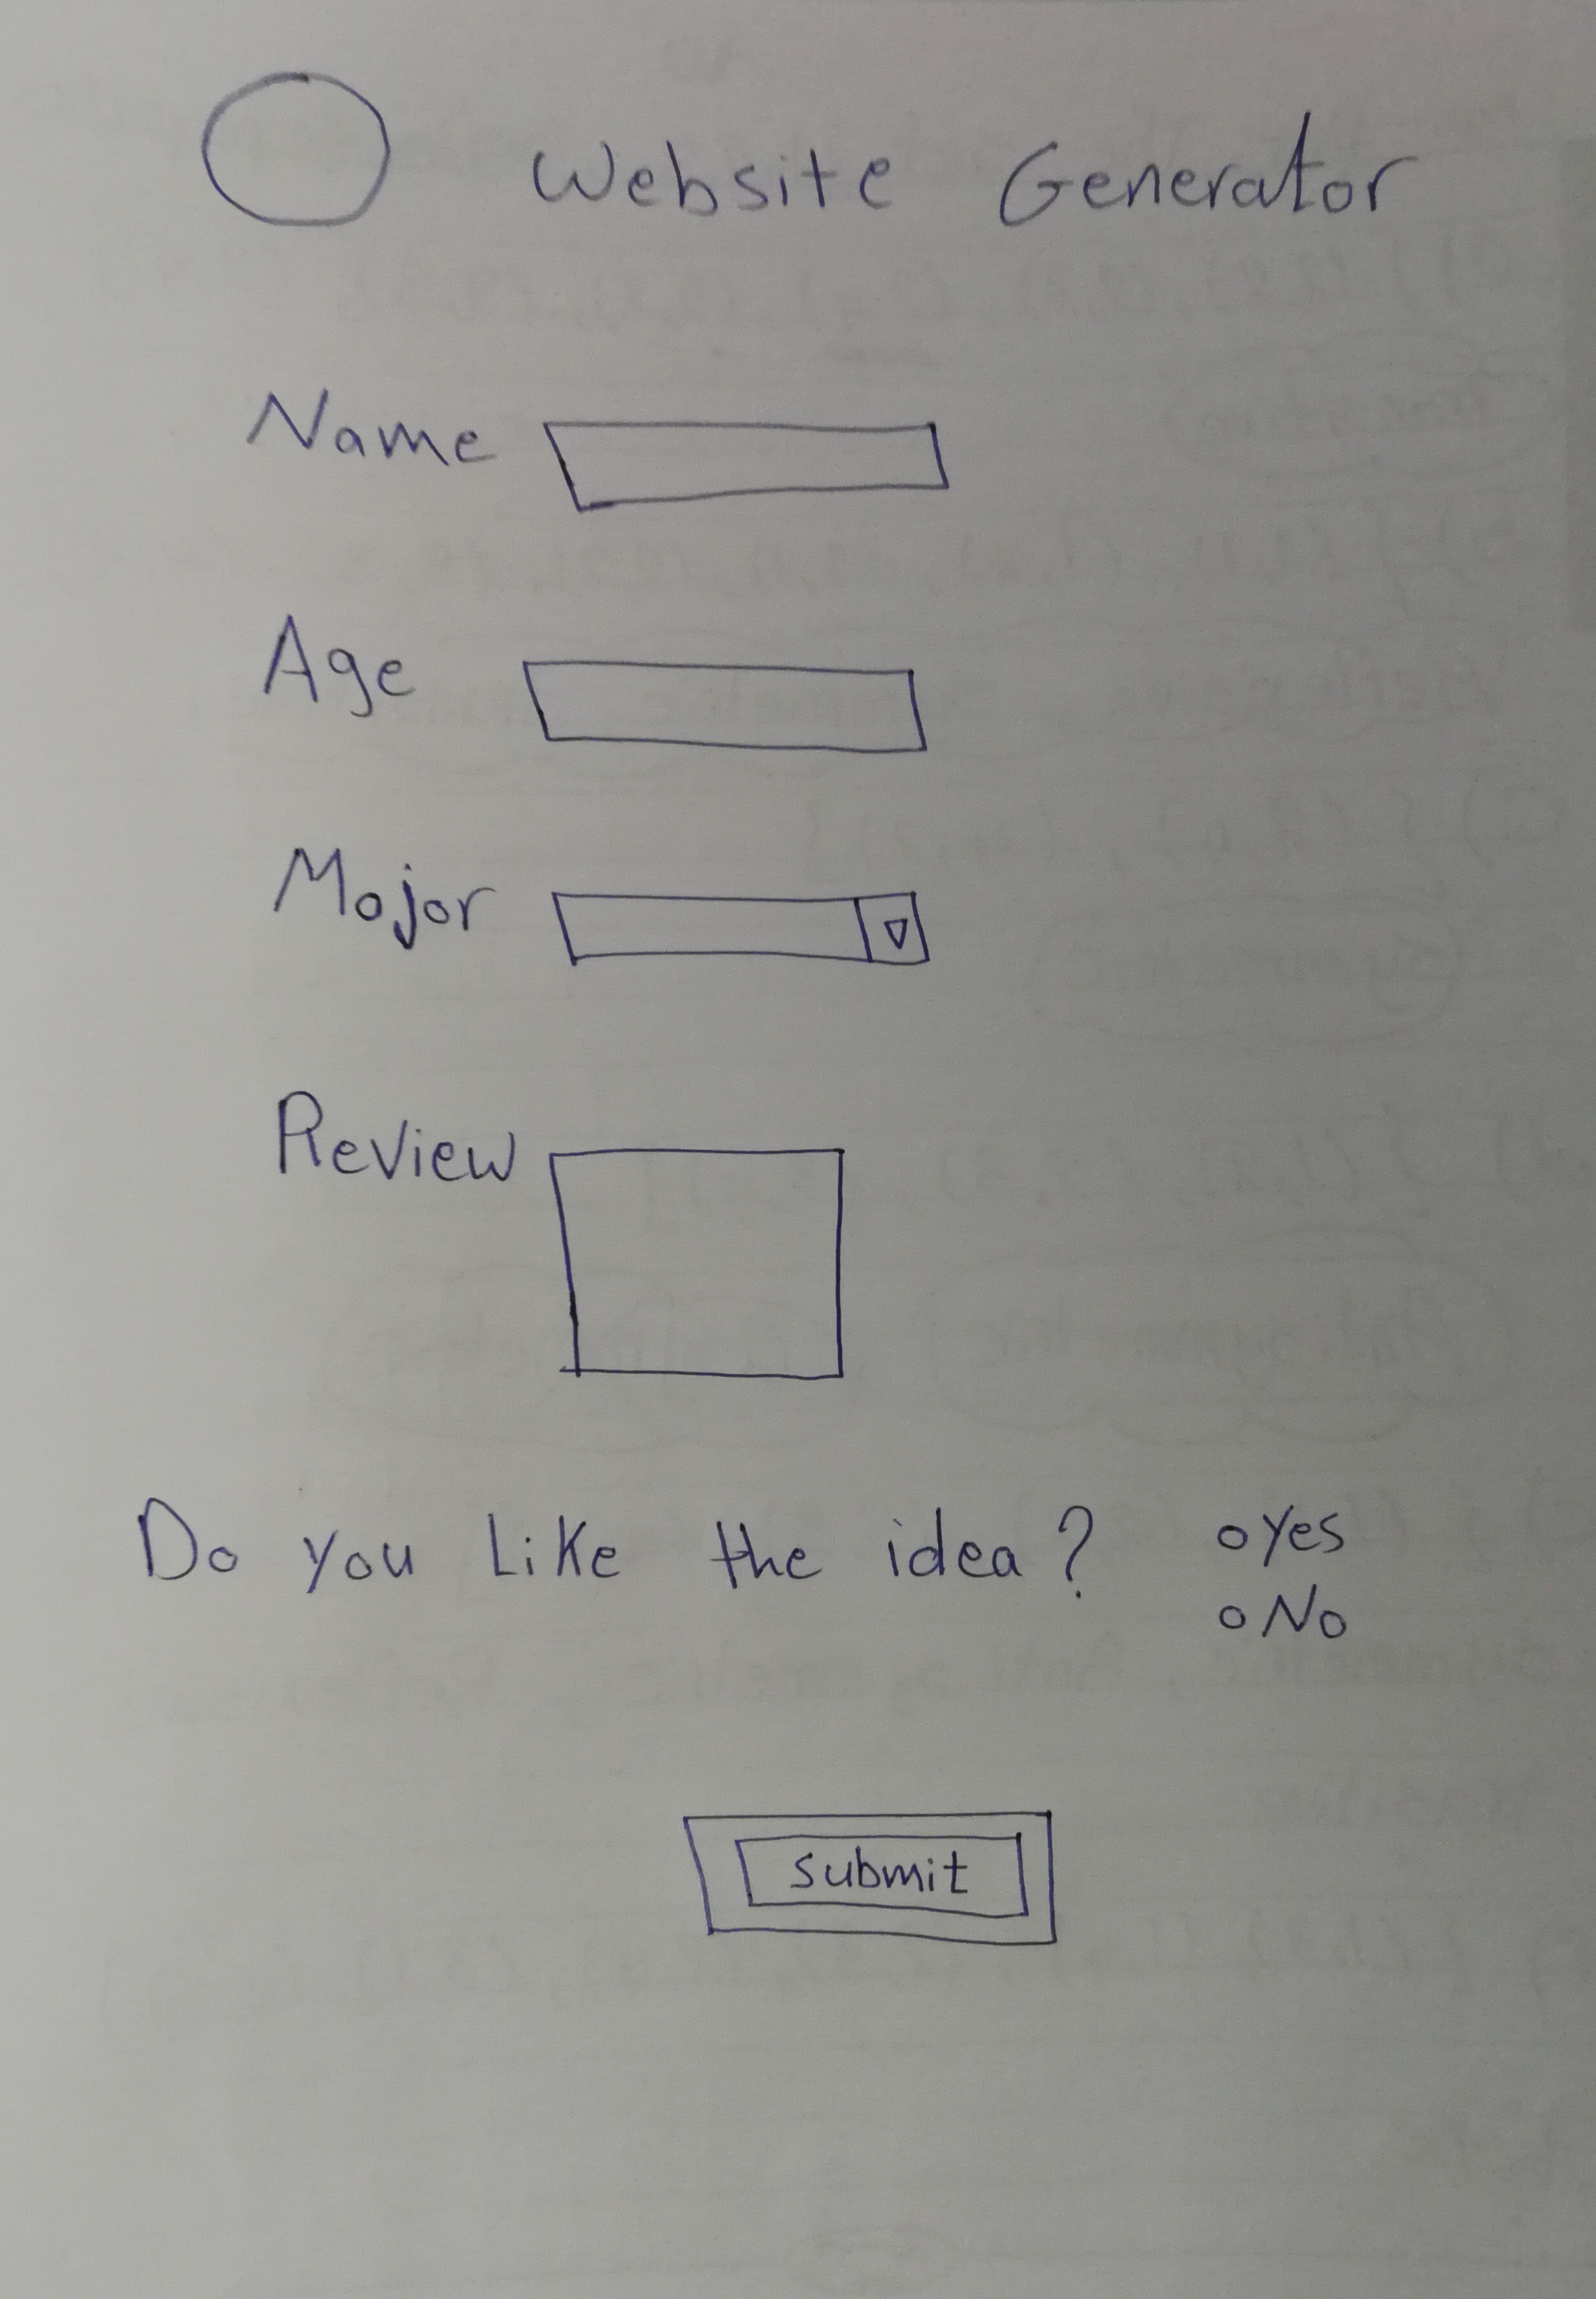 Website Generator
Name
Age
Major
Review
Do you Like the idea?
Yes
No
submit